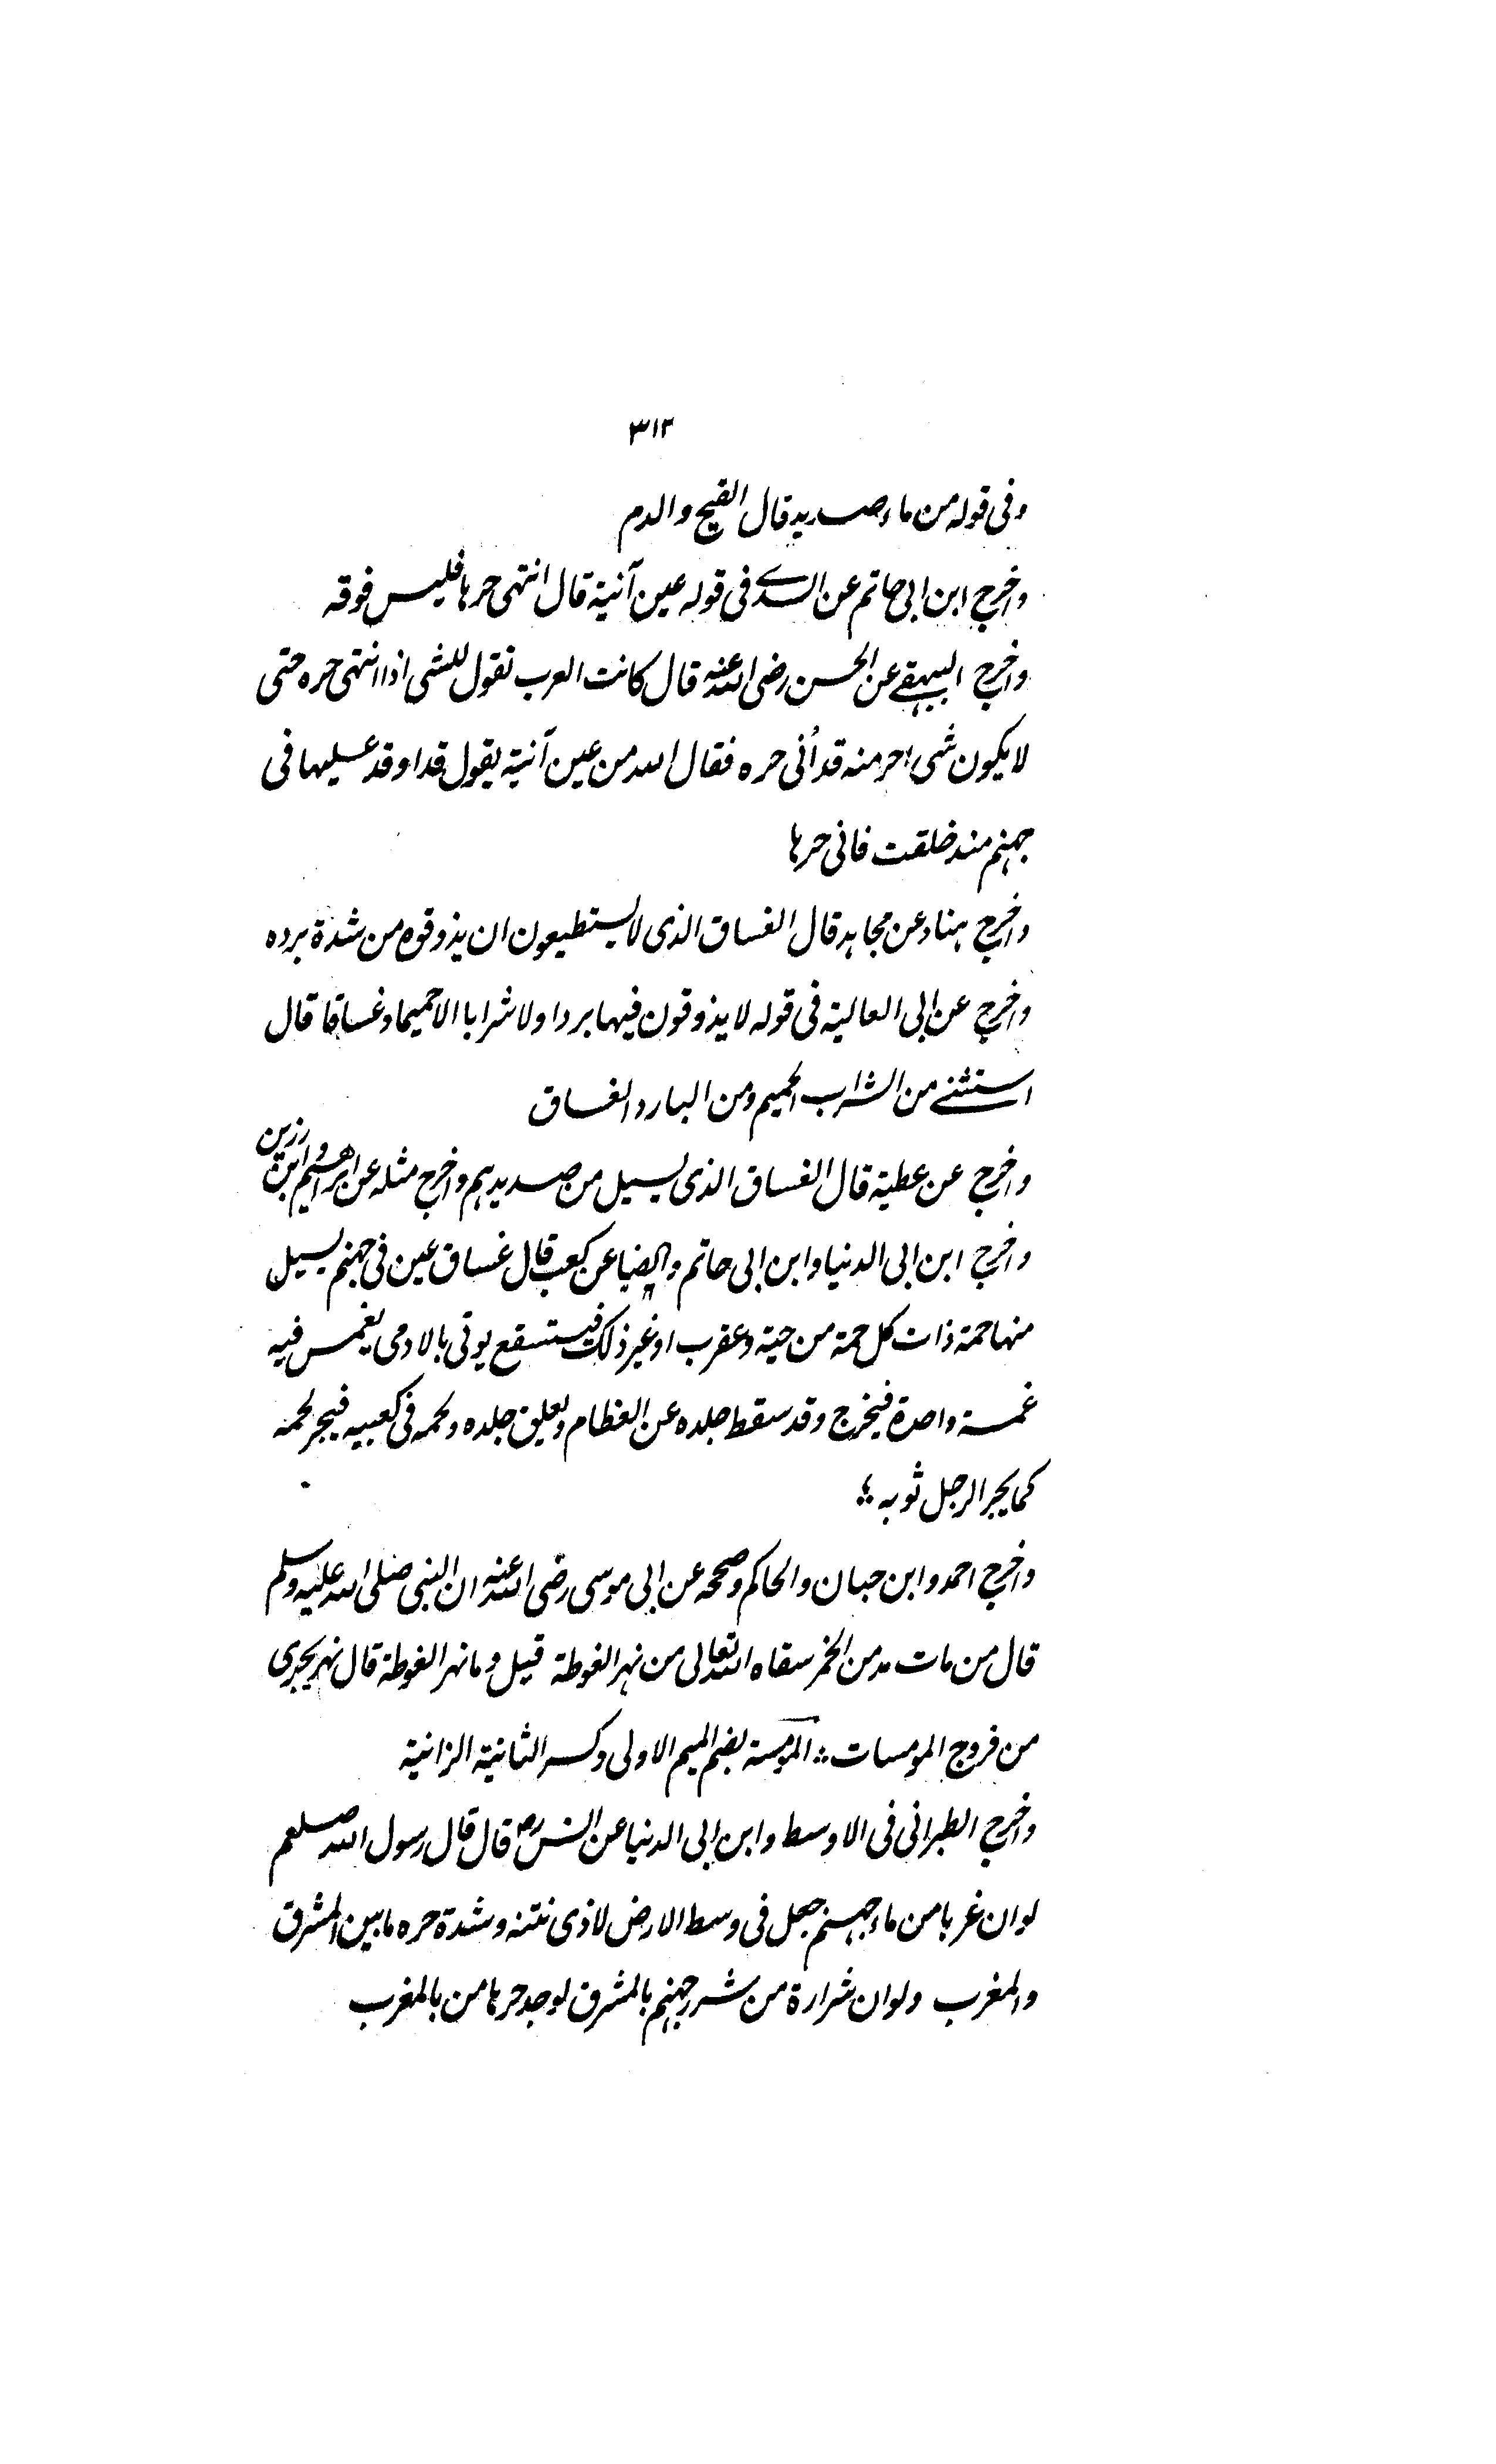 ٣١٢
وفى قوله من ماء صديد قال القيح والدم
واخرج ابن ابى حاتم عن السدى فى قوله عين آنية قال انتهى حرها فليس فوقه
واخرج البيهقى عن الحسن رضى الله عنه قال كانت العرب تقول للشى اذا انتهى حره حتى
لا يكون شى احر منه قد أنى حره فقال الله من عين آنية يقول قد اوقد عليها فى
جهنم منذ خلقت فانى حرها
واخرج هناد عن مجاهد قال الغساق الذى لا يستطيعون ان يذوقوه من شدة برده
واخرج عن ابى العالية فى قوله لا يذوقون فيها بردا ولا شرابا الا حميما وغساقا قال
استثنى من الشراب الحميم ومن البارد الغساق
واخرج عن عطية قال الغساق الذى يسيل من صديدهم واخرج مثله عن ابراهيم وابن رزين
واخرج ابن ابى الدنيا وابن ابى حاتم وايضا عن كعب قال غساق عين فى جهنم يسيل
منها حمة ذات كل حمة من حية وعقرب او غير ذلك فيستنقع يوتى بالادمى يغمس فيه
غمسة واحدة فيخرج وقد سقط جلده عن العظام وتعلق جلده ولحمه فى كعبيه فيجر لحمه
كما يجر الرجل ثوبه ؛
واخرج احمد وابن حبان والحاكم وصححه عن ابى موسى رضى الله عنه ان النبى صلى الله عليه وسلم
قال من مات مدمن الخمر سقاه الله تعالى من نهر الغوطة قيل وما نهر الغوطة قال نهر يجرى
من فروج المومسات ؛ المومسة بضم الميم الاولى وكسر الثانية الزانية
واخرج الطبرانى فى الاوسط وابن ابى الدنيا عن انس رض قال قال رسول الله صلعم
لو ان غربا من ماء جهنم جعل فى وسط الارض لاذى نتنه وشدة حره ما بين المشرق
والمغرب ولو ان شرارة من شرر جهنم بالمشرق لوجد حرها من بالمغرب